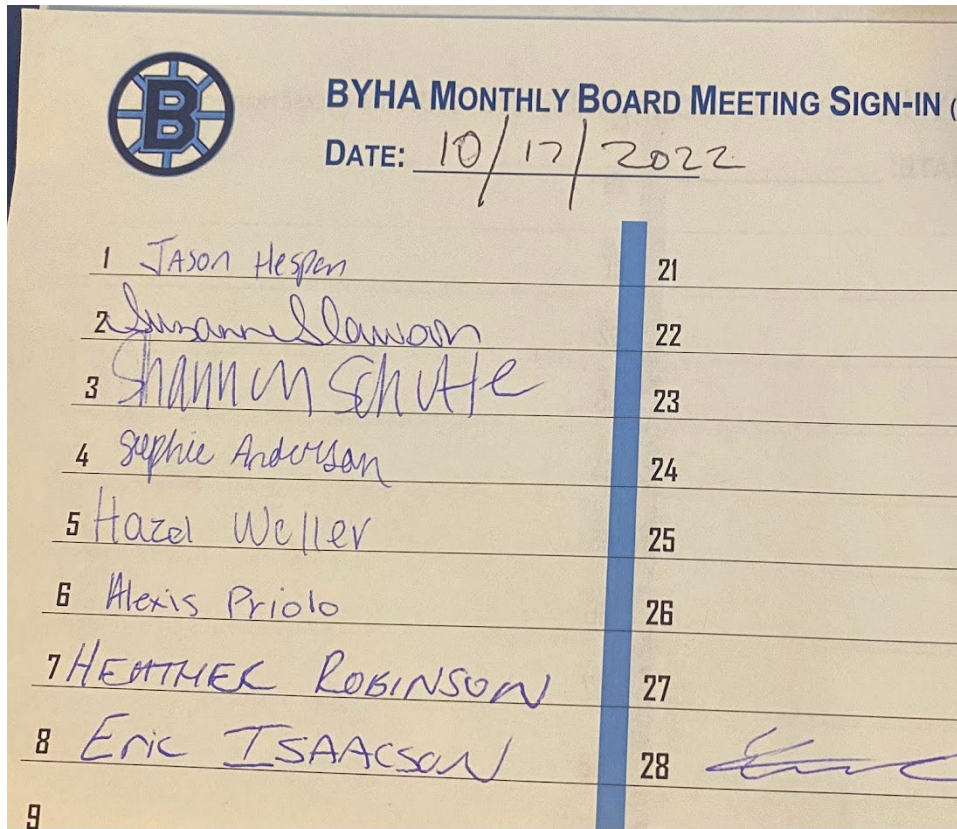 B
BYHA MONTHLY BOARD MEETING SIGN-IN (
DATE: 10/17/2022
1 JASON Hespen
2 Suzanne Slawson
3 Shannon Schutte
4 Sophie Anderson
5 Hazel Weller
6 Alexis Priolo
7 HEATHER ROBINSON
8 Eric ISAACSON
9
21
22
23
24
25
26
27
28